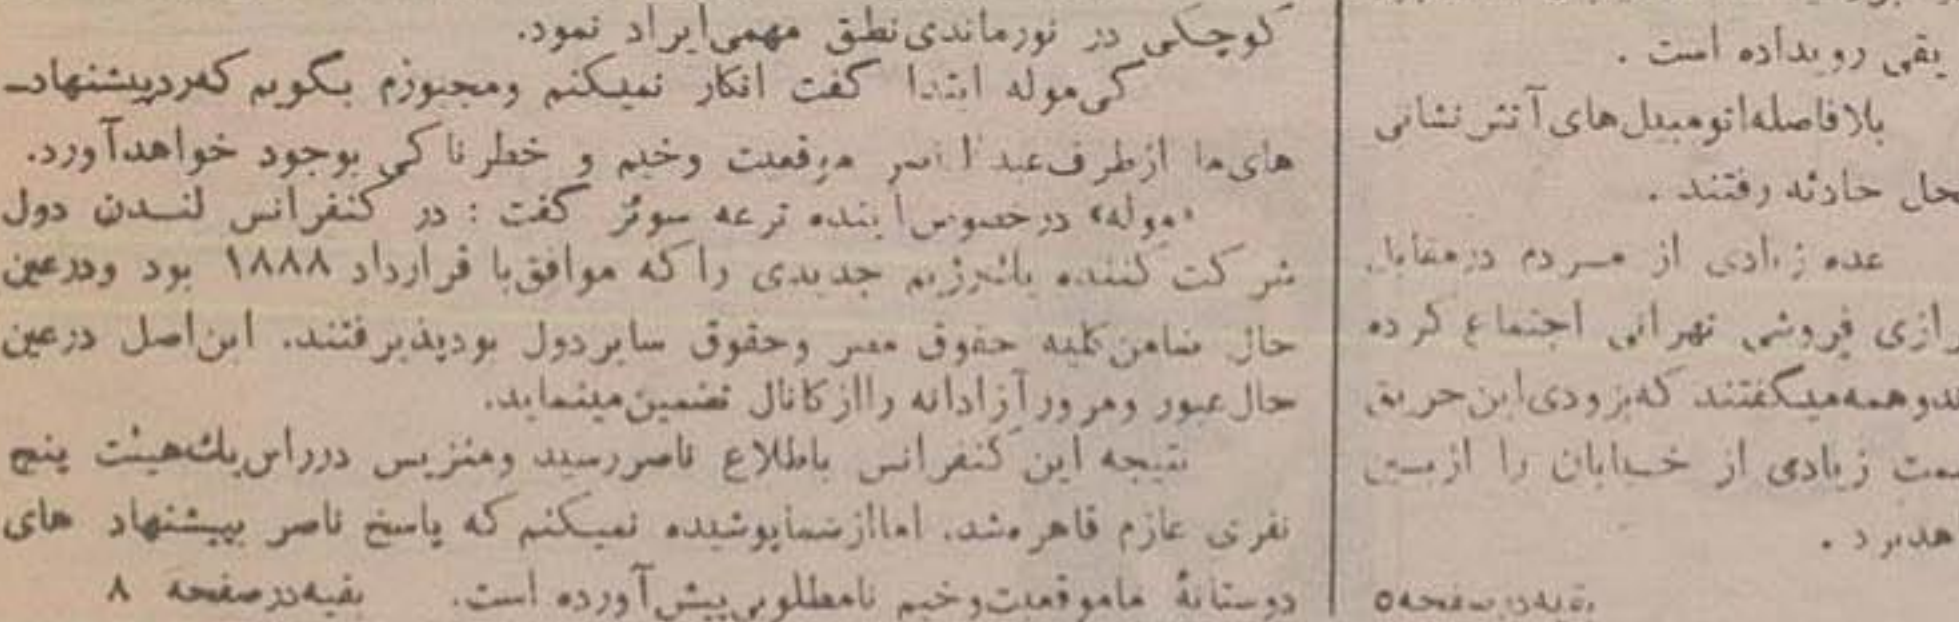 یقی رویداده است .
بلافاصله اتومبیل های آتش نشانی
حل حادثه رفتند .
عده زیادی از مردم درمقابل
رازی فروشی تهرانی اجتماع کرده
ندوهمه میگفتند که بزودی این حریق
مت زیادی از خیابان را ازبین
هدبرد .
بقیه در صفحه ۵
کوچکی در نورماندی نطق مهمی ایراد نمود.
کی موله ابتدا گفت انکار نمیکنم ومجبورم بگویم که ردپیشنهاد-
های ما ازطرف عبدالناصر موقعیت وخیم و خطرناکی بوجود خواهدآورد.
«موله» درخصوص آینده ترعه سوئز گفت : در کنفرانس لندن دول
شرکت کننده یک رژیم جدیدی را که موافق با قرارداد ۱۸۸۸ بود ودرعین
حال ضامن کلیه حقوق مصر وحقوق سایر دول بودپذیرفتند. این اصل درعین
حال عبور ومرور آزادانه رااز کانال تضمین مینماید.
نتیجه این کنفرانس باطلاع ناصر رسید ومنزیس درراس یک هیئت پنج
نفری عازم قاهره شد. اما از شما پوشیده نمیکنم که پاسخ ناصر بپیشنهاد های
دوستانهٔ ما موقعیت وخیم نامطلوبی پیش آورده است. بقیه در صفحه ۸